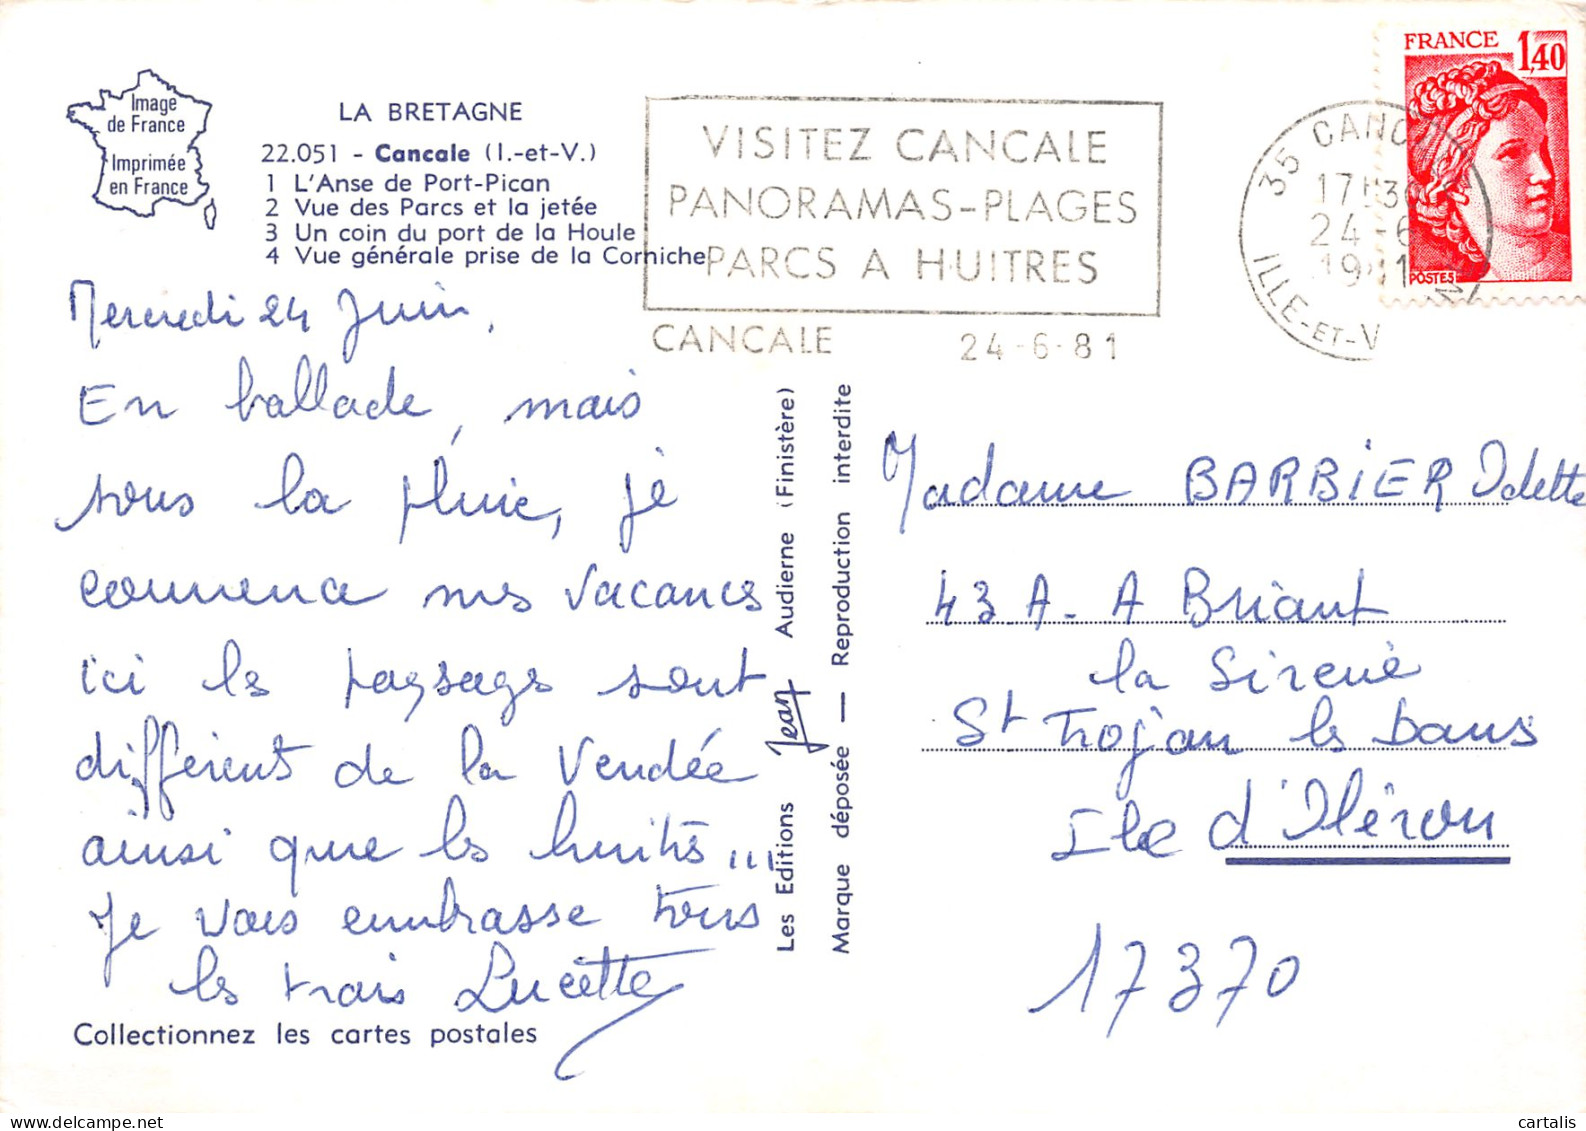 Image
de France
Imprimée
en France
LA BRETAGNE
22.051 - Cancale (I.-et-V.)
1 L'Anse de Port-Pican
2 Vue des Parcs et la jetée
3 Un coin du port de la Houle
4 Vue générale prise de la Corniche
VISITEZ CANCALE
PANORAMAS-PLAGES
PARCS A HUITRES
CANCALE 24-6-81
35 CANCALE
17H30
24-6
1981
ILLE-ET-V
FRANCE 1,40
POSTES
Mercredi 24 Juin,
En ballade, mais
sous la pluie, je
commence mes vacances
ici les paysages sont
différents de la Vendée
ainsi que les huitres...
Je vous embrasse tous
les trois Lucette
Collectionnez les cartes postales
Les Editions Jean Audierne (Finistère)
Marque déposée — Reproduction interdite
Madame BARBIER Odette
43 A. A Briant
la Sirène
St Trojan les bains
Ile d'Oléron
17370
cartalis
delcampe.net